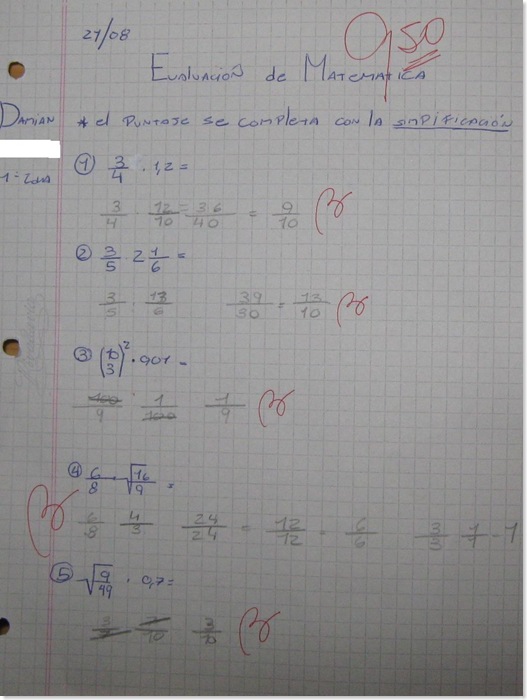 27/08
9,50
Evaluación de Matematica
Damian
* el puntaje se completa con la simplificación
① 3/4 · 1,2 =
3/4 · 12/10 = 36/40 = 9/10 B
② 3/5 · 2 1/6 =
3/5 · 13/6 39/30 = 13/10 B
③ (10/3)² · 0,01 =
100/9 · 1/100 1/9 B
④ 6/8 · √16/9 =
B 6/8 4/3 24/24 = 12/12 - 6/6 3/3 1/1 - 1
⑤ √9/49 · 0,7 =
3/7 7/10 3/10 B